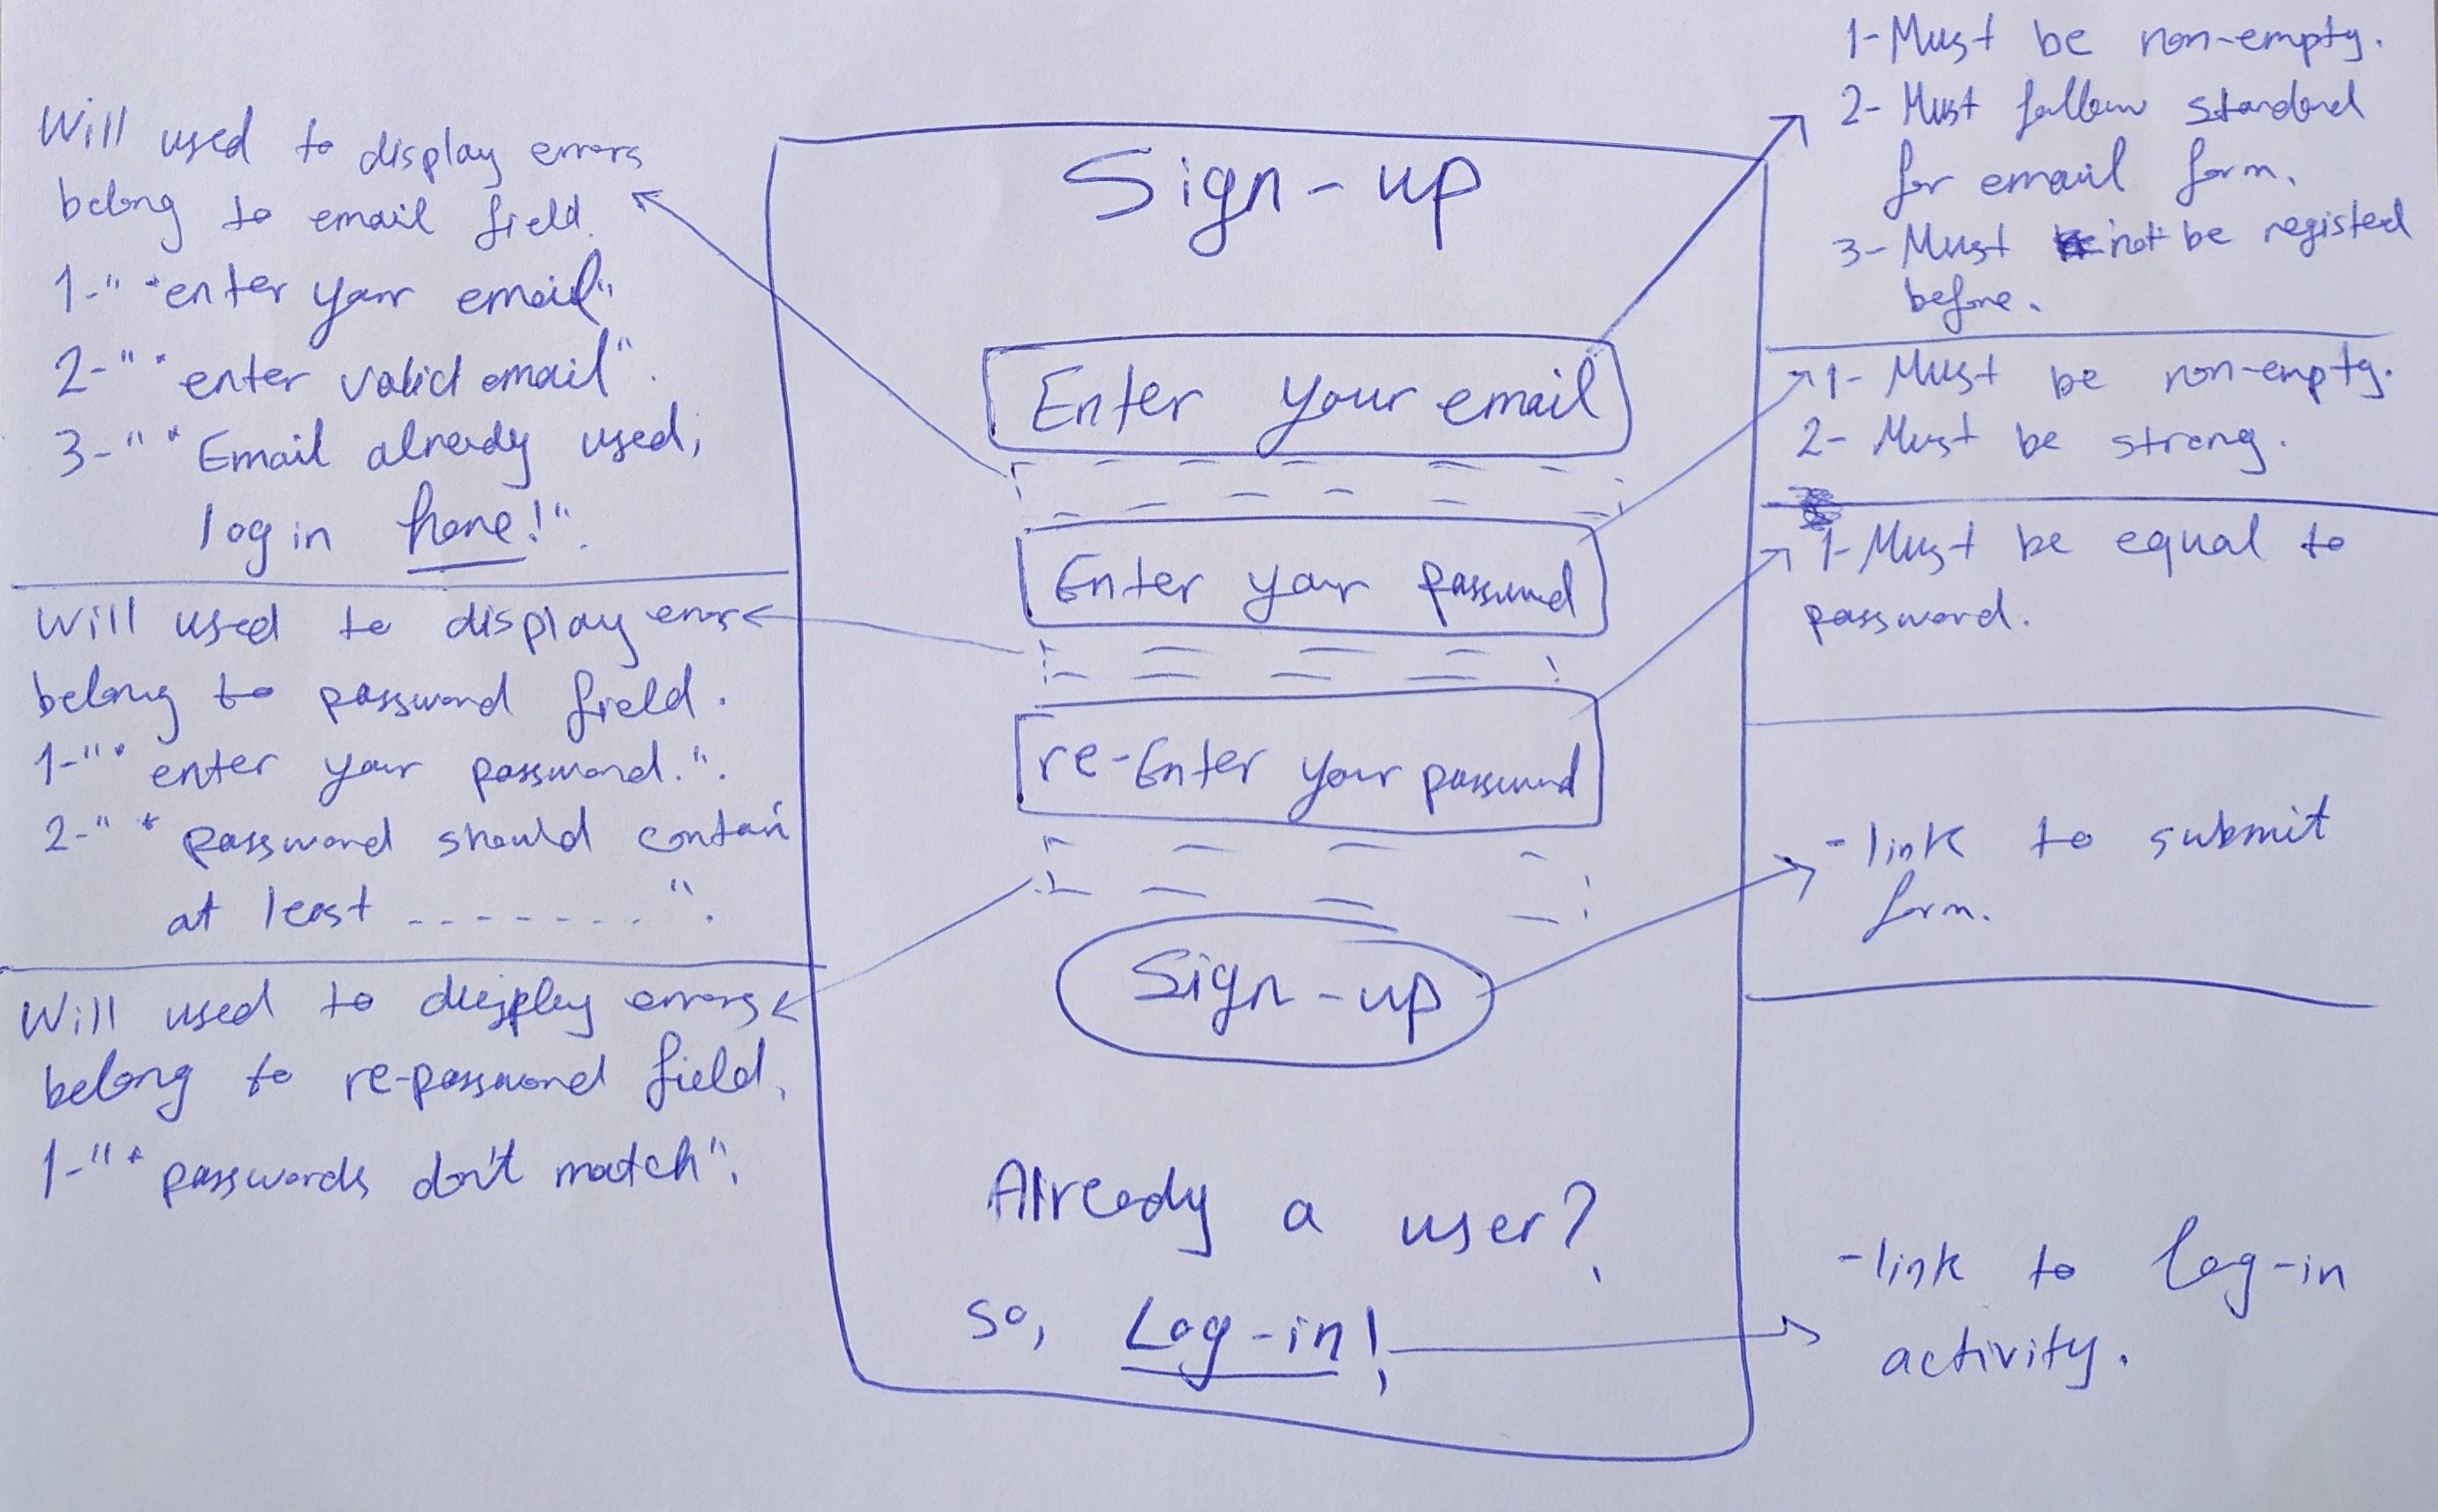 Will used to display errors
belong to email field.
1-"*enter your email"
2-"*enter valid email".
3-"*Email already used,
log in here!".
Will used to display error
belong to password field.
1-"* enter your password.".
2-"* password should contain
at least --------".
Will used to display errors
belong to re-password field.
1-"* passwords don't match".
Sign-up
Enter your email
Enter your password
re-Enter your password
Sign-up
Already a user?
so, Log-in!
1- Must be non-empty.
2- Must follow standard
for email form.
3- Must not be registed
before.
1- Must be non-empty.
2- Must be strong.
1- Must be equal to
password.
- link to submit
form.
- link to log-in
activity.